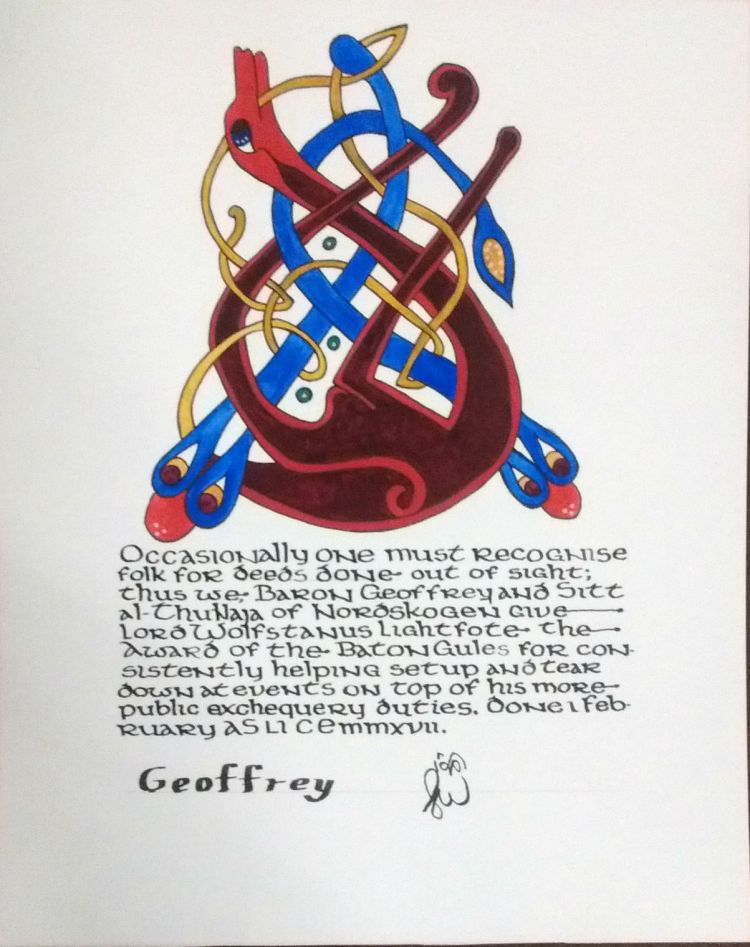 Occasionally one must recognise
folk for deeds done out of sight;
thus we, Baron Geoffrey and Sitt
al-Thullaja of Nordskogen give
Lord Wolfstanus Lightfote the
Award of the Baton Gules for con-
sistently helping setup and tear
down at events on top of his more
public exchequery duties. Done 1 Feb-
ruary AS LI CE MMXVII.
Geoffrey